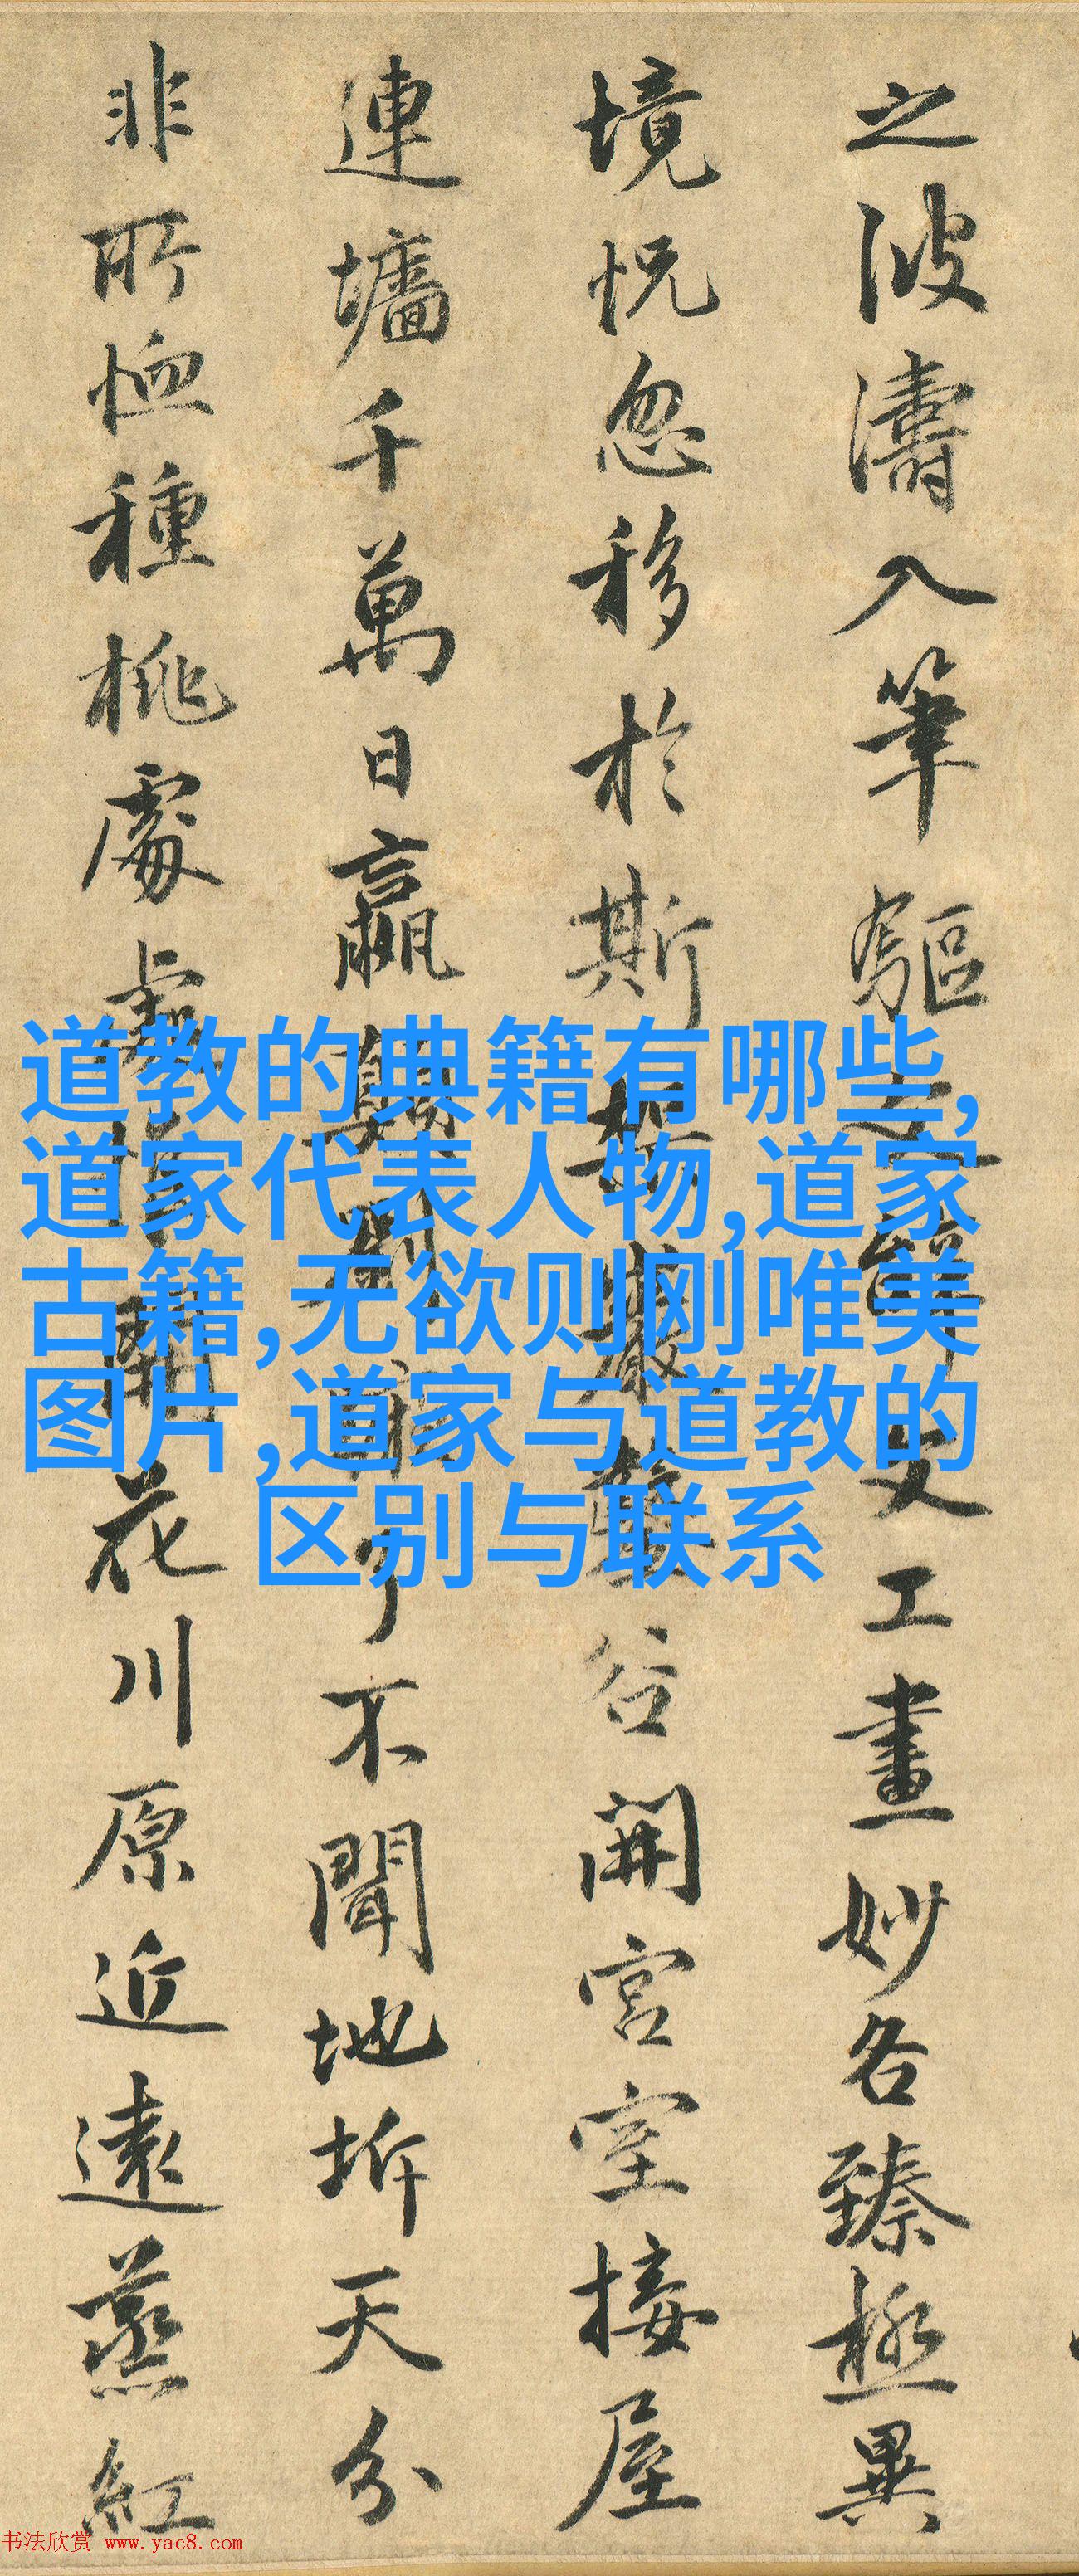 之波濤入筆驅文辭文工畫妙各臻極異
境怳忽移於斯架巖鑿谷開宮室接屋
連墻千萬日嬴顛劉蹶了不聞地坼天分
非所恤種桃處處惟開花川原近遠蒸紅
道教的典籍有哪些,
道家代表人物,道家
古籍,无欲则刚唯美
图片,道家与道教的
区别与联系
书法欣赏 www.yac8.com